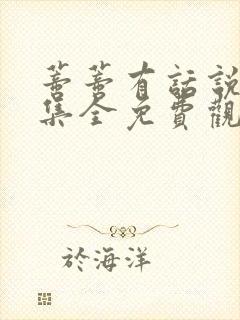 蕾蕾有話說
集全免費觀
於海洋